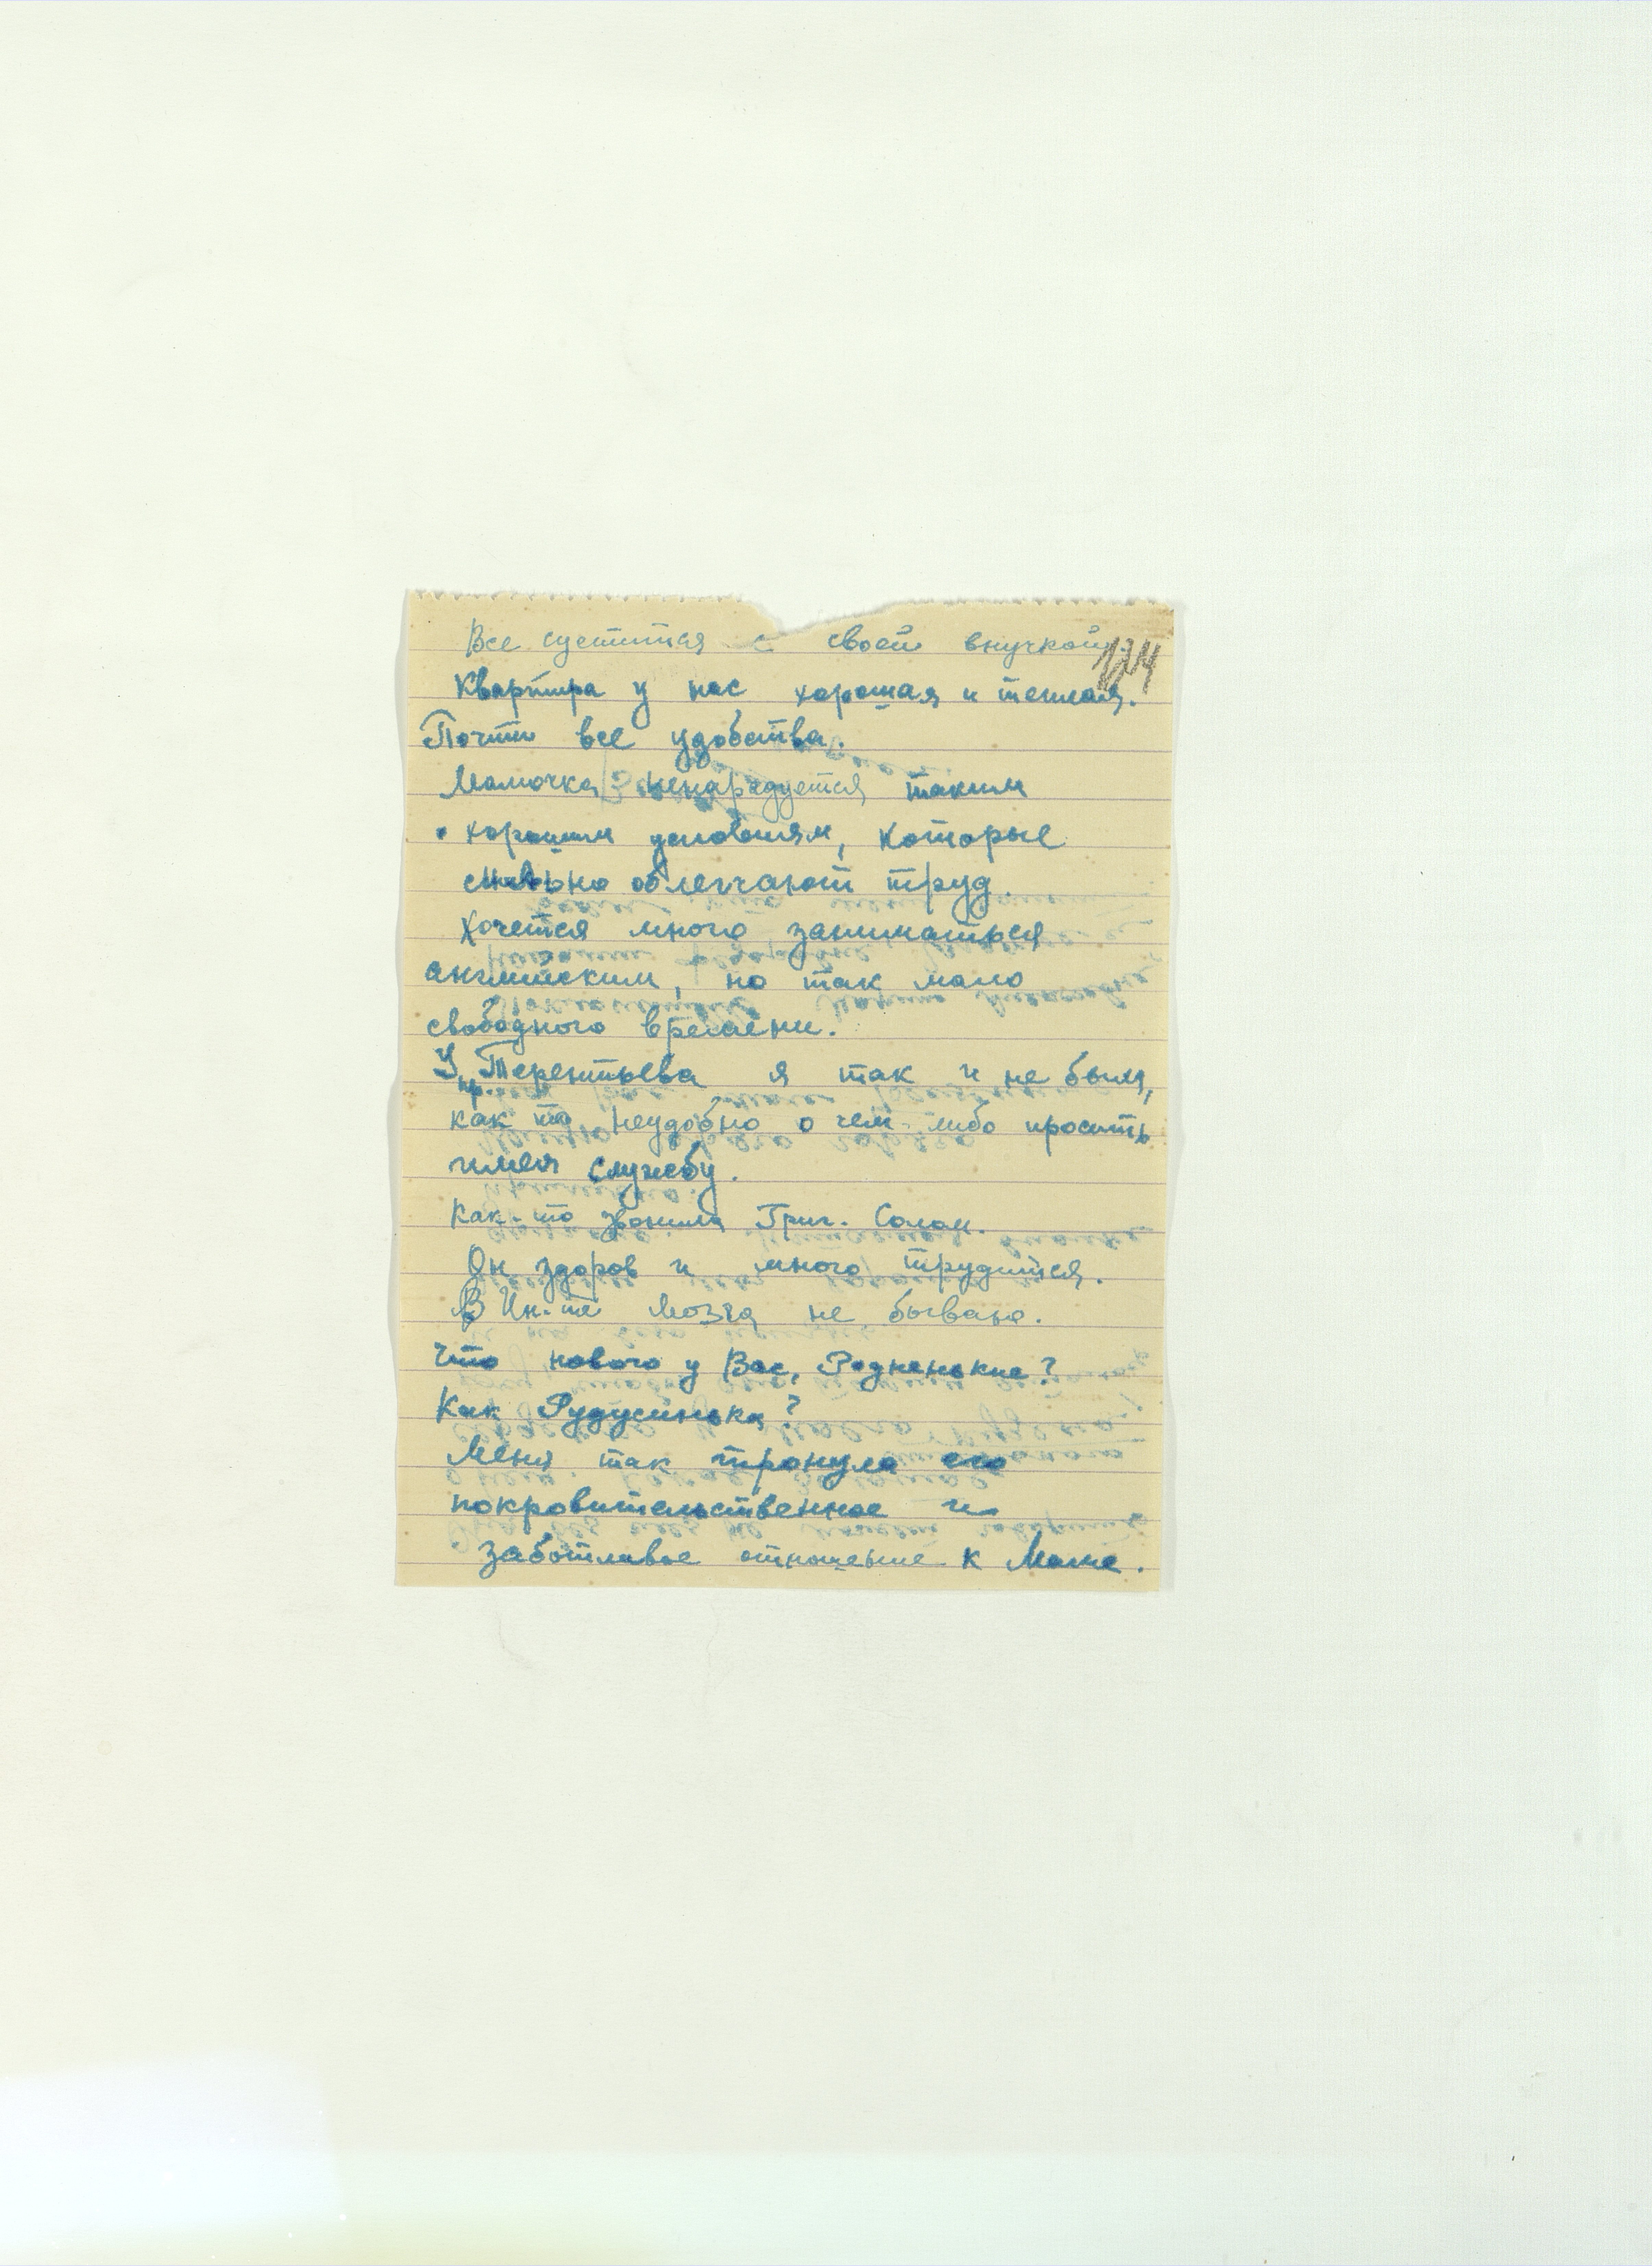 Все суетится с своей внучкой.
124
Квартира у нас хорошая и теплая.
Почти все удобства.
Мамочка ненарадуется таким
хорошим условиям, которые
сильно облегчают труд.
Хочется много заниматься
английским, но так мало
свободного времени.
У пр. Терентьева я так и не был,
как то неудобно о чем-либо просить
имея службу.
Как-то звонил Григ. Солом.
Он здоров и много трудится.
В Ин-те Мозга не бываю.
Что нового у Вас, Родненькие?
Как Рудусинька?
Меня так тронуло его
покровительственное и
заботливое отношение к Маме.